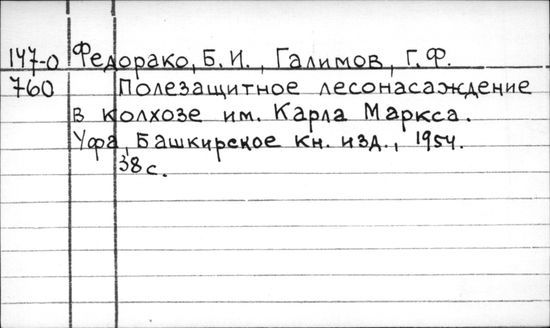 147-0 Федорако, Б. И., Галимов, Г. Ф.
760 Полезащитное лесонасаждение
в колхозе им. Карла Маркса.
Уфа, Башкирское кн. изд., 1954.
38 с.